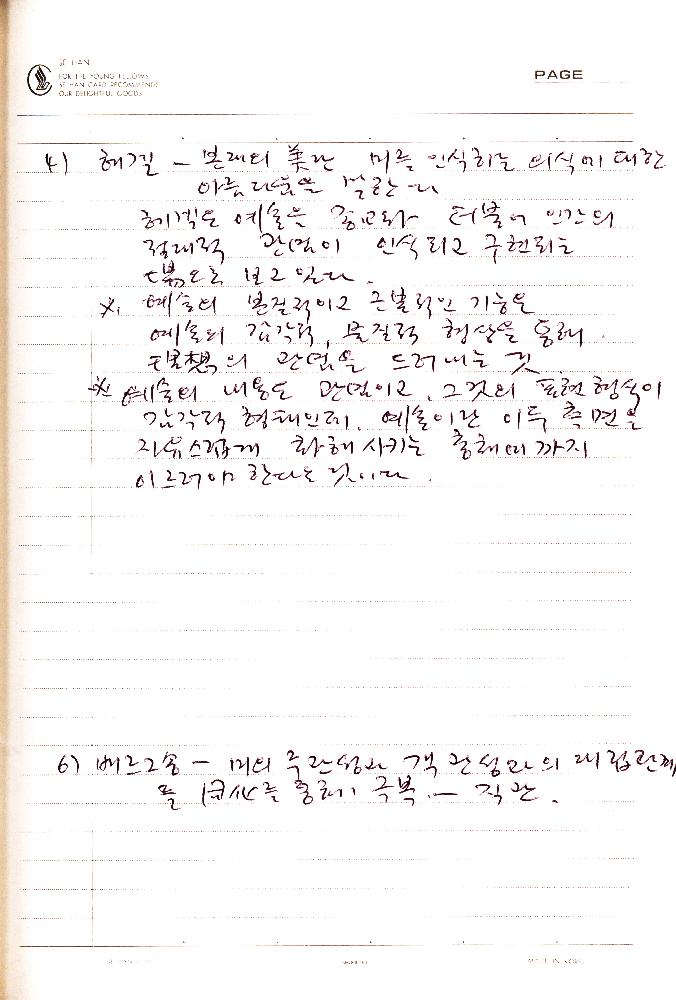 SE HAN
FOR THE YOUNG FELLOWS
SE HAN CARD RECOMMENDS
OUR DELIGHTFUL GOODS
PAGE
4) 헤겔 - 본래의 美란 미를 인식하는 의식에 대한
아름다움을 말한다
헤겔은 예술은 종교와 더불어 인간의
절대적 관념이 인식되고 구현되는
場으로 보고 있다.
※. 예술의 본질적이고 근본적인 기능은
예술의 감각적, 물질적 형상을 통해
理想의 관념을 드러내는 것
※ 예술의 내용도 관념이고, 그것의 표현형식이
감각적 형태인데, 예술이란 이 두 측면을
자유스럽게 화해시키는 총체에까지
이르러야 한다는 것이다.
6) 베르그송 - 미의 주관성과 객관성과의 대립관계
를 同化를 통해 극복 - 직관.